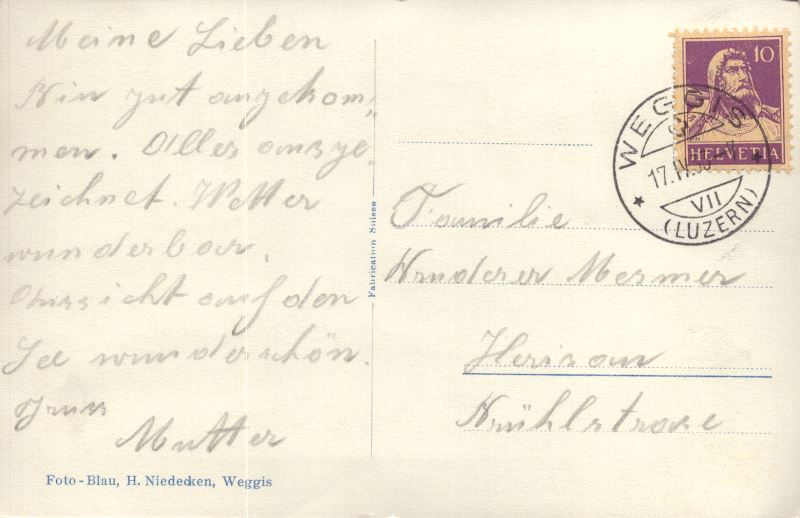 Meine Lieben
Bin gut angekom„
men. Alles ausge„
zeichnet. Wetter
wunderbar.
Aussicht auf den
See wunderschön.
Gruss
Mutter
Foto-Blau, H. Niedecken, Weggis
Fabrication Suisse
10
HELVETIA
WEGGIS
17.IV.
VII
(LUZERN)
Familie
Mesmer
Herisau